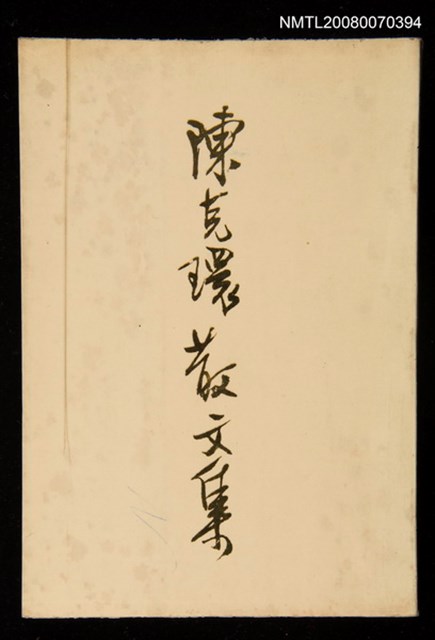 NMTL20080070394
陳克環散文集